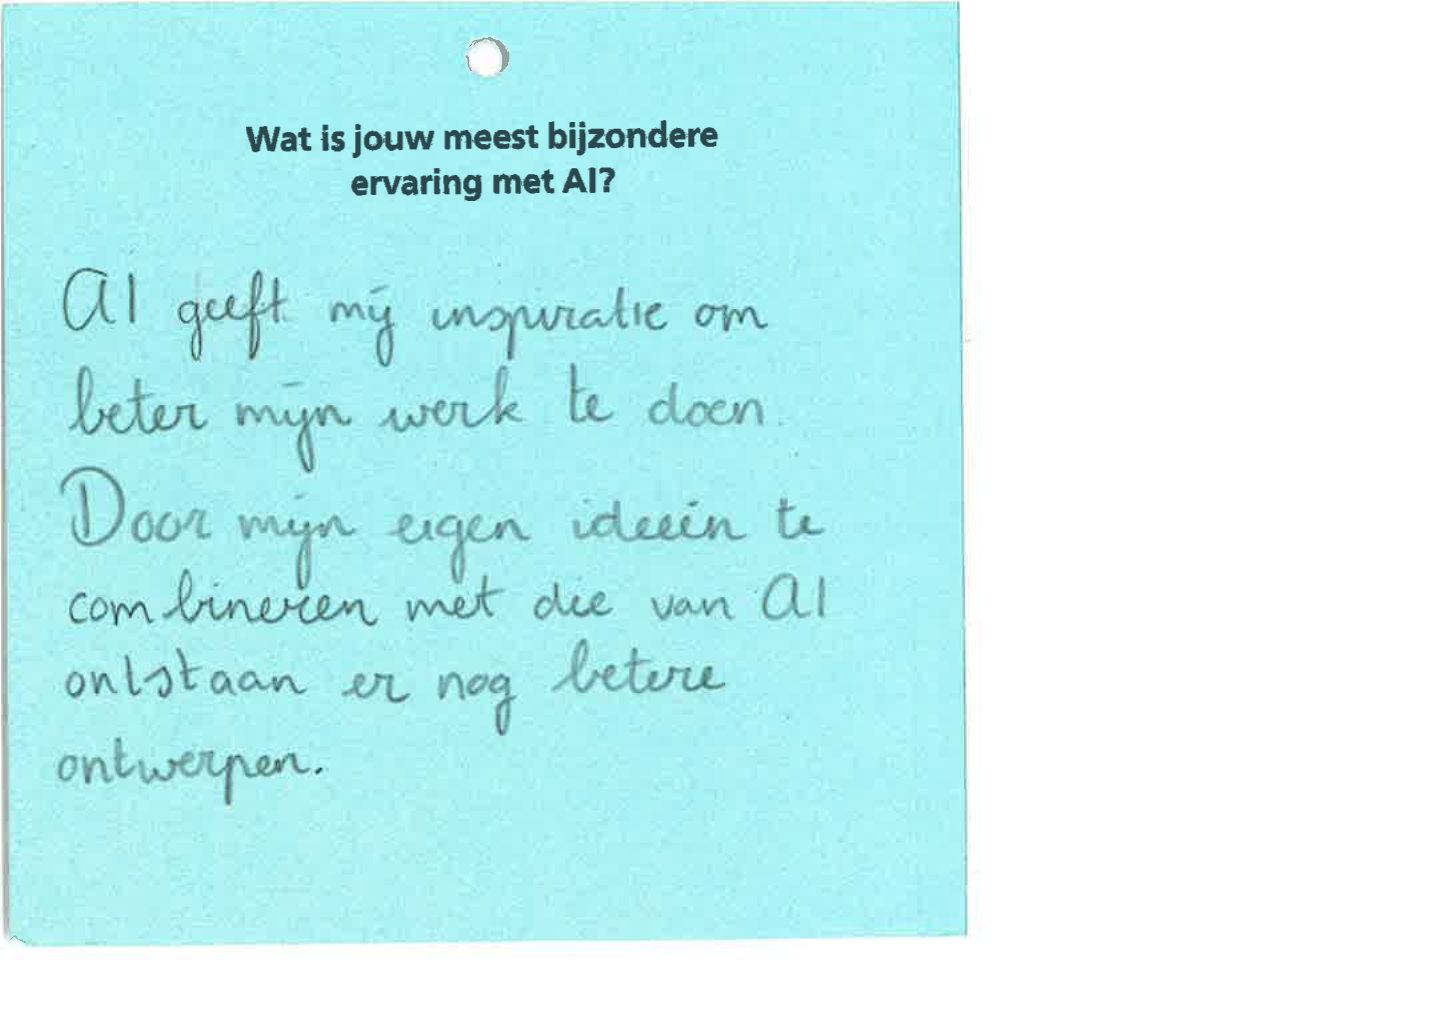 Wat is jouw meest bijzondere
ervaring met AI?
AI geeft mij inspiratie om
beter mijn werk te doen.
Door mijn eigen ideeën te
combineren met die van AI
ontstaan er nog betere
ontwerpen.